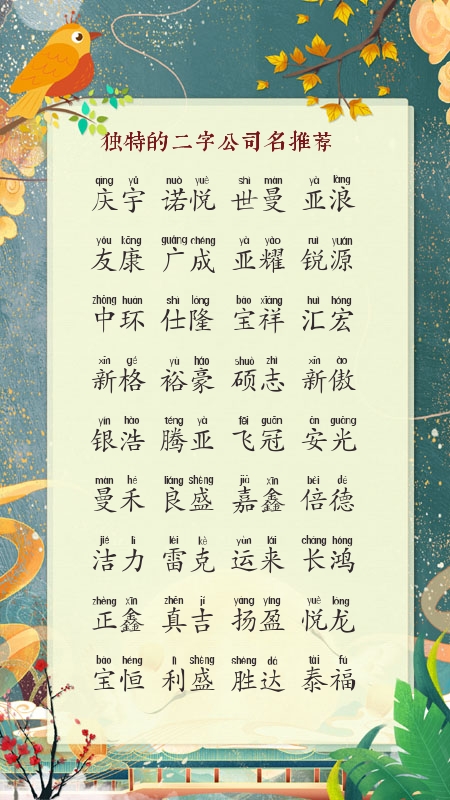 独特的二字公司名推荐
qìng yǔ nuò yuè shì màn yà làng
庆宇 诺悦 世曼 亚浪
yǒu kāng guǎng chéng yà yào ruì yuán
友康 广成 亚耀 锐源
zhōng huán shì lóng bǎo xiáng huì hóng
中环 仕隆 宝祥 汇宏
xīn gé yù háo shuò zhì xīn ào
新格 裕豪 硕志 新傲
yín hào téng yà fēi guān ān guāng
银浩 腾亚 飞冠 安光
màn hé liáng shèng jiā xīn bèi dé
曼禾 良盛 嘉鑫 倍德
jié lì léi kè yùn lái cháng hóng
洁力 雷克 运来 长鸿
zhèng xīn zhēn jí yáng yíng yuè lóng
正鑫 真吉 扬盈 悦龙
bǎo héng lì shèng shèng dá tài fú
宝恒 利盛 胜达 泰福